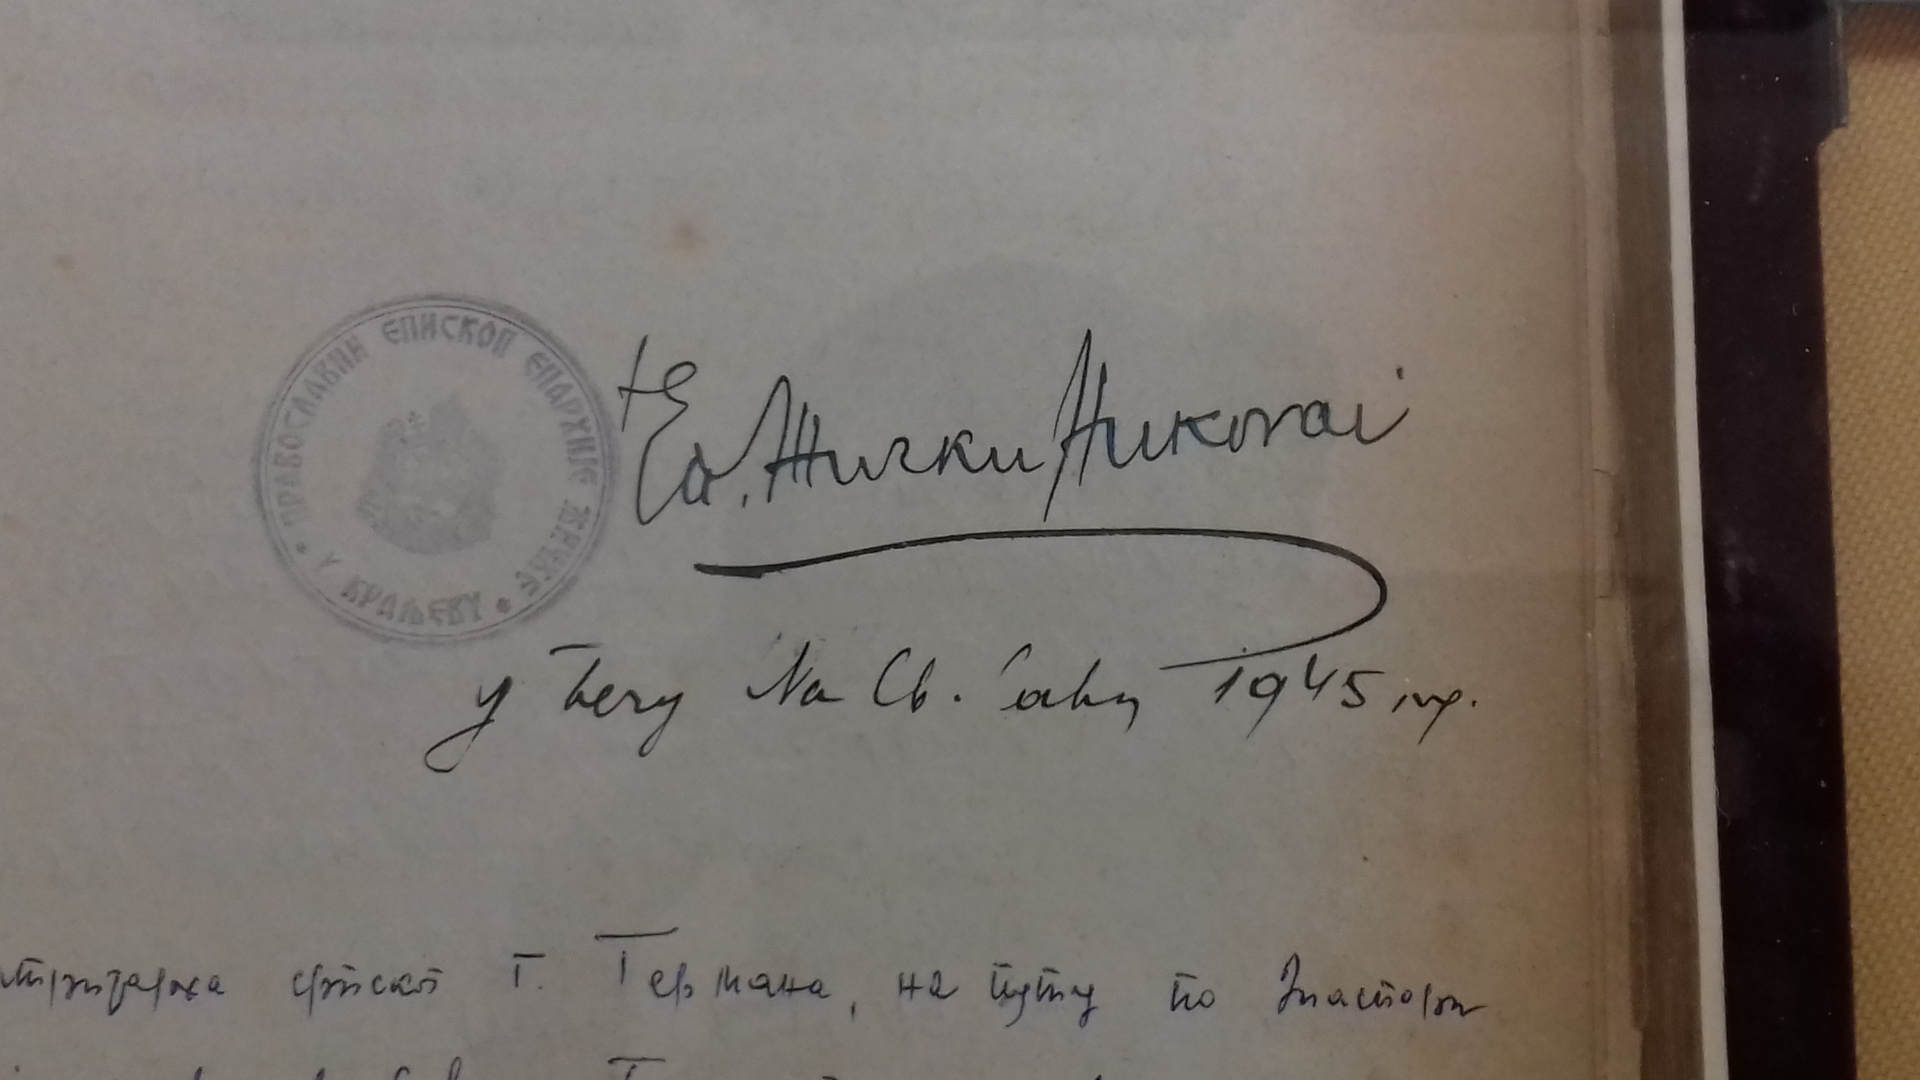 ПРАВОСЛАВНИ ЕПИСКОП ЕПАРХИЈЕ ЖИЧКЕ
У КРАЉЕВУ
+ Еп. Жички Николаі
у Бечу На Св. Саву 1945 год.
српског Г. Германа, на путу по